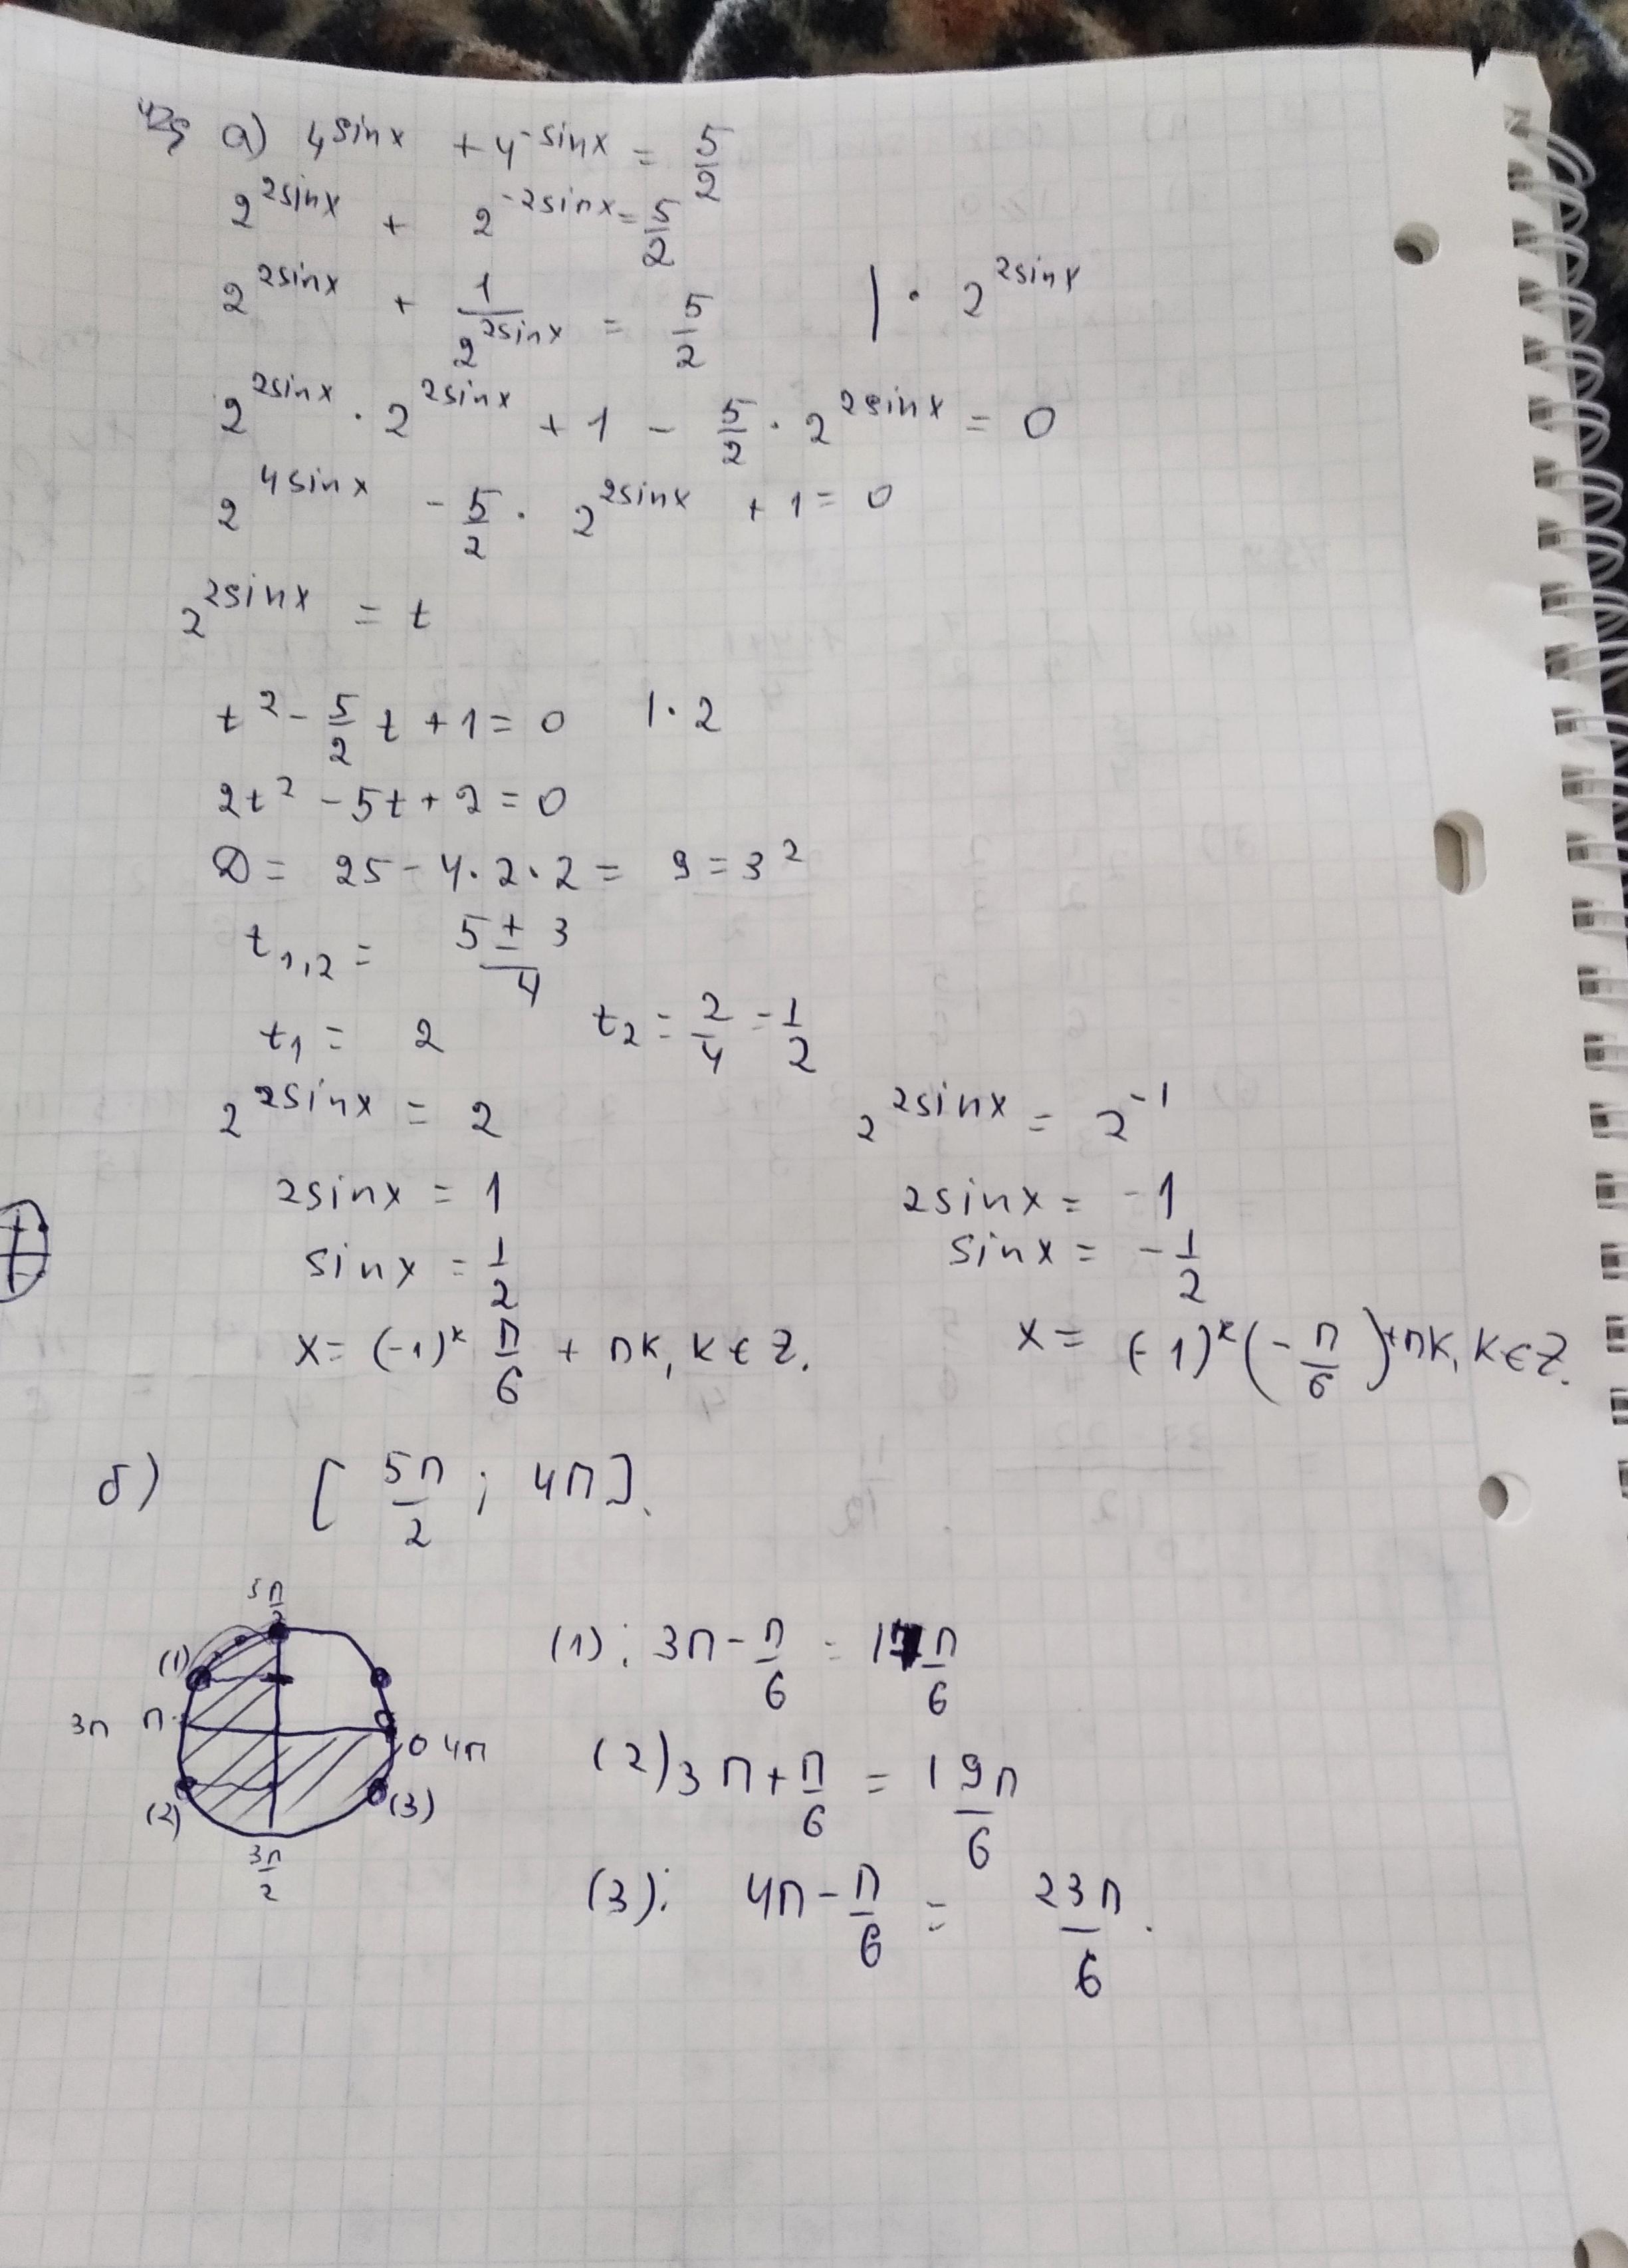 а) 4^sinx + 4^-sinx = 5/2
2^2sinx + 2^-2sinx = 5/2
2^2sinx + 1/2^2sinx = 5/2 | · 2^2sinx
2^2sinx · 2^2sinx + 1 - 5/2 · 2^2sinx = 0
2^4sinx - 5/2 · 2^2sinx + 1 = 0
2^2sinx = t
t^2 - 5/2 t + 1 = 0 | · 2
2t^2 - 5t + 2 = 0
D = 25 - 4·2·2 = 9 = 3^2
t1,2 = (5 ± 3)/4
t1 = 2 t2 = 2/4 = 1/2
2^2sinx = 2 2^2sinx = 2^-1
2sinx = 1 2sinx = -1
sinx = 1/2 sinx = -1/2
x = (-1)^k π/6 + πk, k ∈ Z. x = (-1)^k (-π/6) + πk, k ∈ Z.
б) [5π/2 ; 4π].
5π/2
(1)
3π π 0 4π
(2) (3)
3π/2
(1): 3π - π/6 = 17π/6
(2) 3π + π/6 = 19π/6
(3): 4π - π/6 = 23π/6.